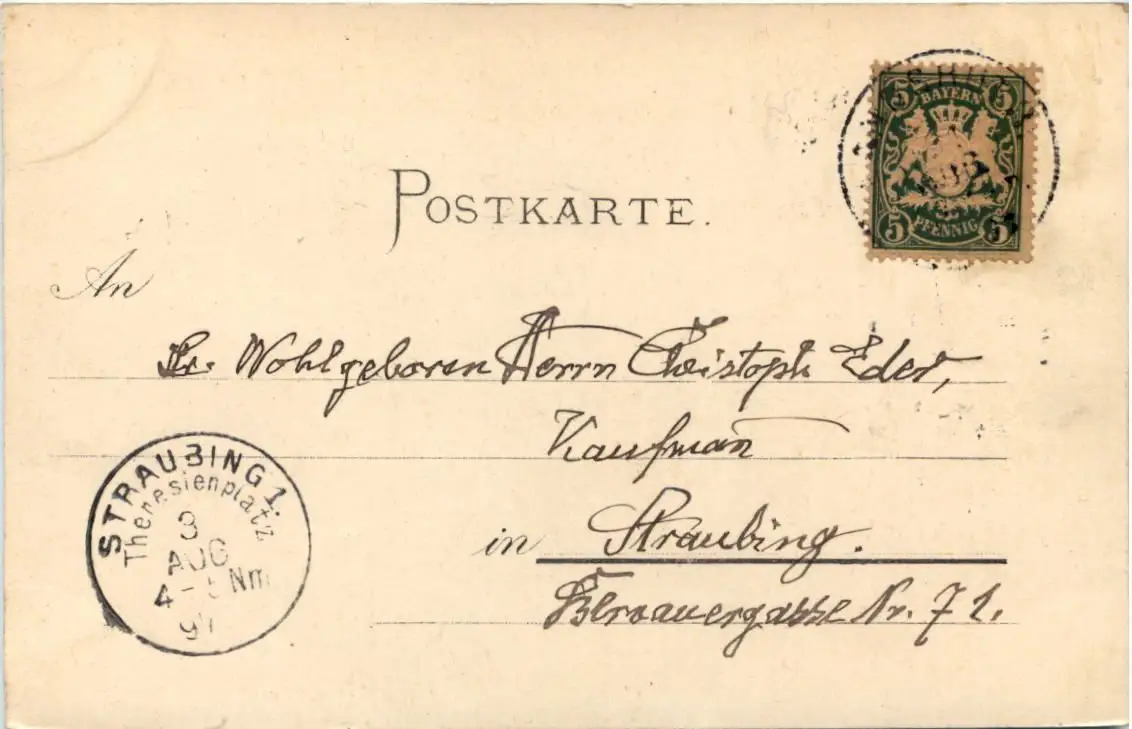 5 BAYERN 5
5 PFENNIG 5
POSTKARTE.
An
Sr. Wohlgeboren Herrn Christoph Eder,
Kaufman
in Straubing.
Nr. 71.
STRAUBING 1.
Theresienplatz
3
AUG
4-5 Nm
97